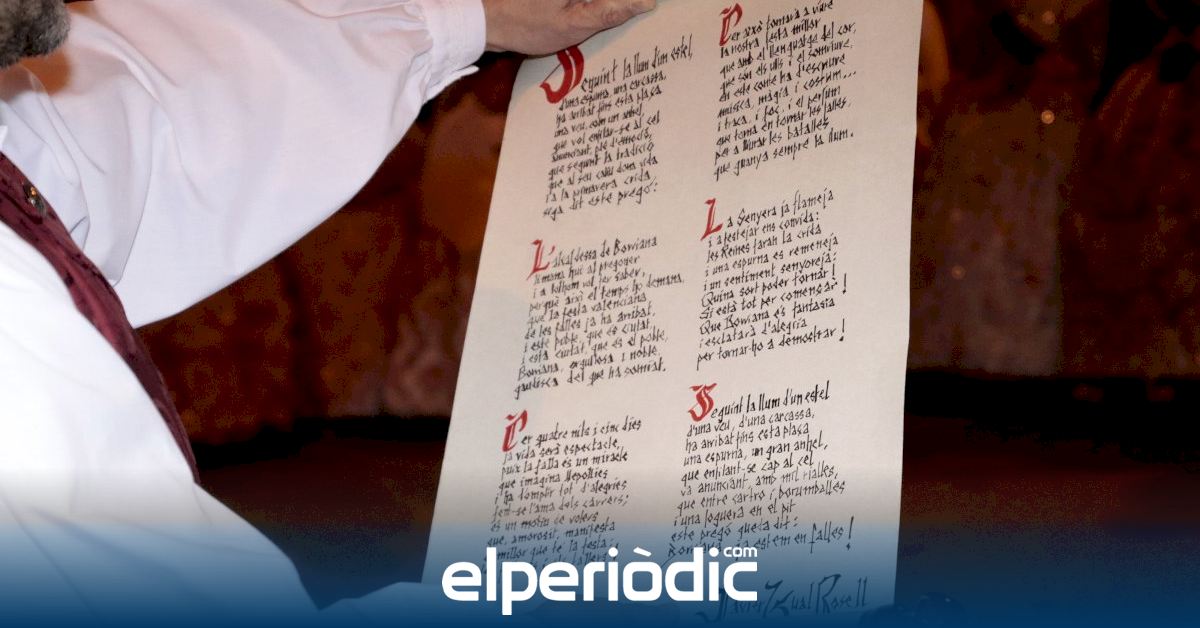 Seguint la llum d'un estel,
d'una espurna, una carcassa,
ha arribat fins esta plaça
una veu, com un anhel,
que vol enfilar-se al cel
anunciant, ple d'emoció,
que seguint la tradició
que al seu caliu dona vida
i a la primavera crida,
siga dit este pregó:
L'alcaldessa de Borriana
demana hui al pregoner
i a tothom vol fer saber,
perquè això el temps ho demana,
que la festa valenciana
de les falles ja ha arribat,
i este poble, que és ciutat,
i esta ciutat, que és el poble,
Borriana, orgullosa i noble,
gaudisca del que ha somiat.
Per quatre nits i cinc dies
la vida serà espectacle,
puix la falla és un miracle
que imagina llepolies
i ha d'omplir tot d'alegries
fent-se l'ama dels carrers;
és un motiu de volers
que, amorosit, manifesta
millor que te la festa
Per això tornarà a viure
la nostra festa millor
que amb el llenguatge del cor,
que són els ulls i el somriure,
en este conte ha d'escriure
música, màgia i costum...
i traca, i foc, i el perfum
que torna en tornar les falles,
per a lliurar les batalles
que guanya sempre la llum.
La Senyera ja flameja
i a festejar ens convida:
les Reines faran la crida
i una espurna es remeneja
i un sentiment senyoreja:
Quina sort poder tornar!
Si està tot per començar!
Que Borriana és fantasia
i esclatarà d'alegria
per tornar-ho a demostrar!
Seguint la llum d'un estel
d'una veu, d'una carcassa,
ha arribat fins esta plaça
una espurna, un gran anhel,
que enfilant-se cap al cel
va anunciant, amb mil rialles,
que entre cartró i borumballes
i una foguera en el pit
este pregó queda dit:
Borriana, ja estem en falles!
elperiòdic.com